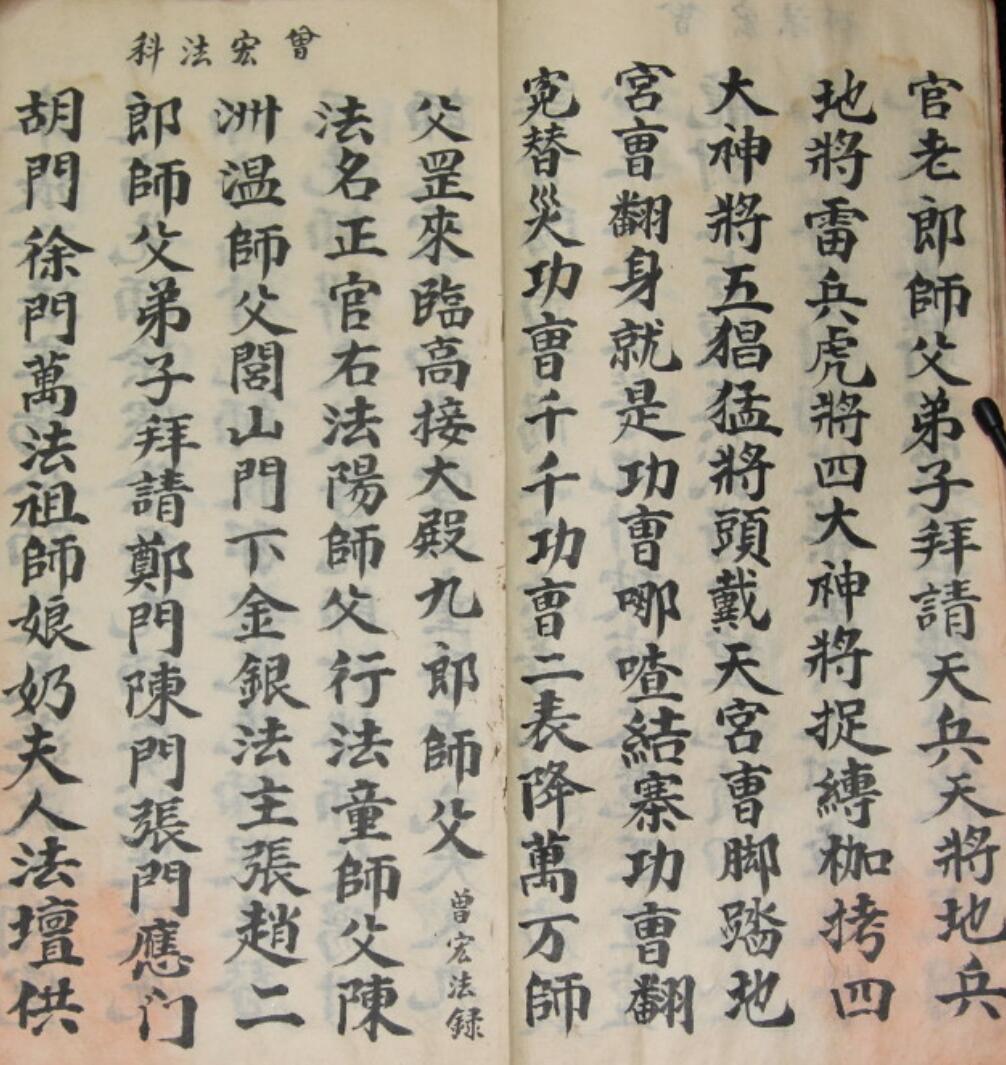 官老郎師父弟子拜請天兵天將地兵
地將雷兵虎將四大神將捉縛枷拷四
大神將五猖猛將頭戴天宮曹脚踏地
宮曹翻身就是功曹哪喳結寨功曹翻
冤替災功曹千千功曹二表降萬万師
曾宏法科
父罡來臨高接大殿九郎師父
曾宏法録
法名正官右法陽師父行法童師父陳
洲温師父閭山門下金銀法主張趙二
郎師父弟子拜請鄭門陳門張門應门
胡門徐門萬法祖師娘奶夫人法壇供